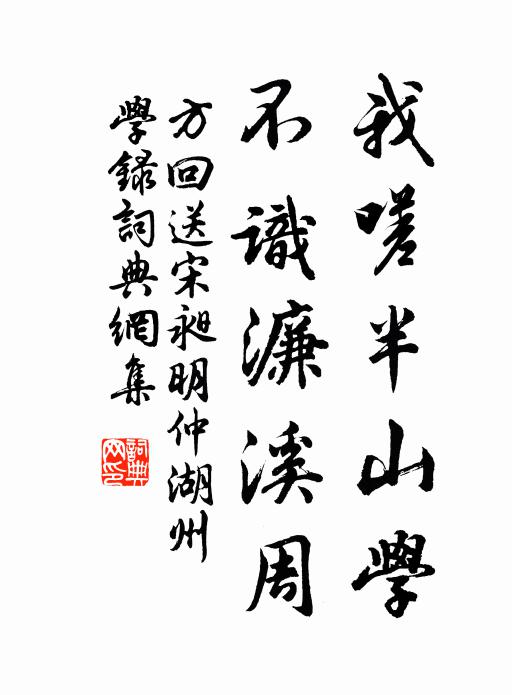 我嗟半山學
不識濂溪周
方回送宋昶明仲湖州
學録詞典網集
詞典网印